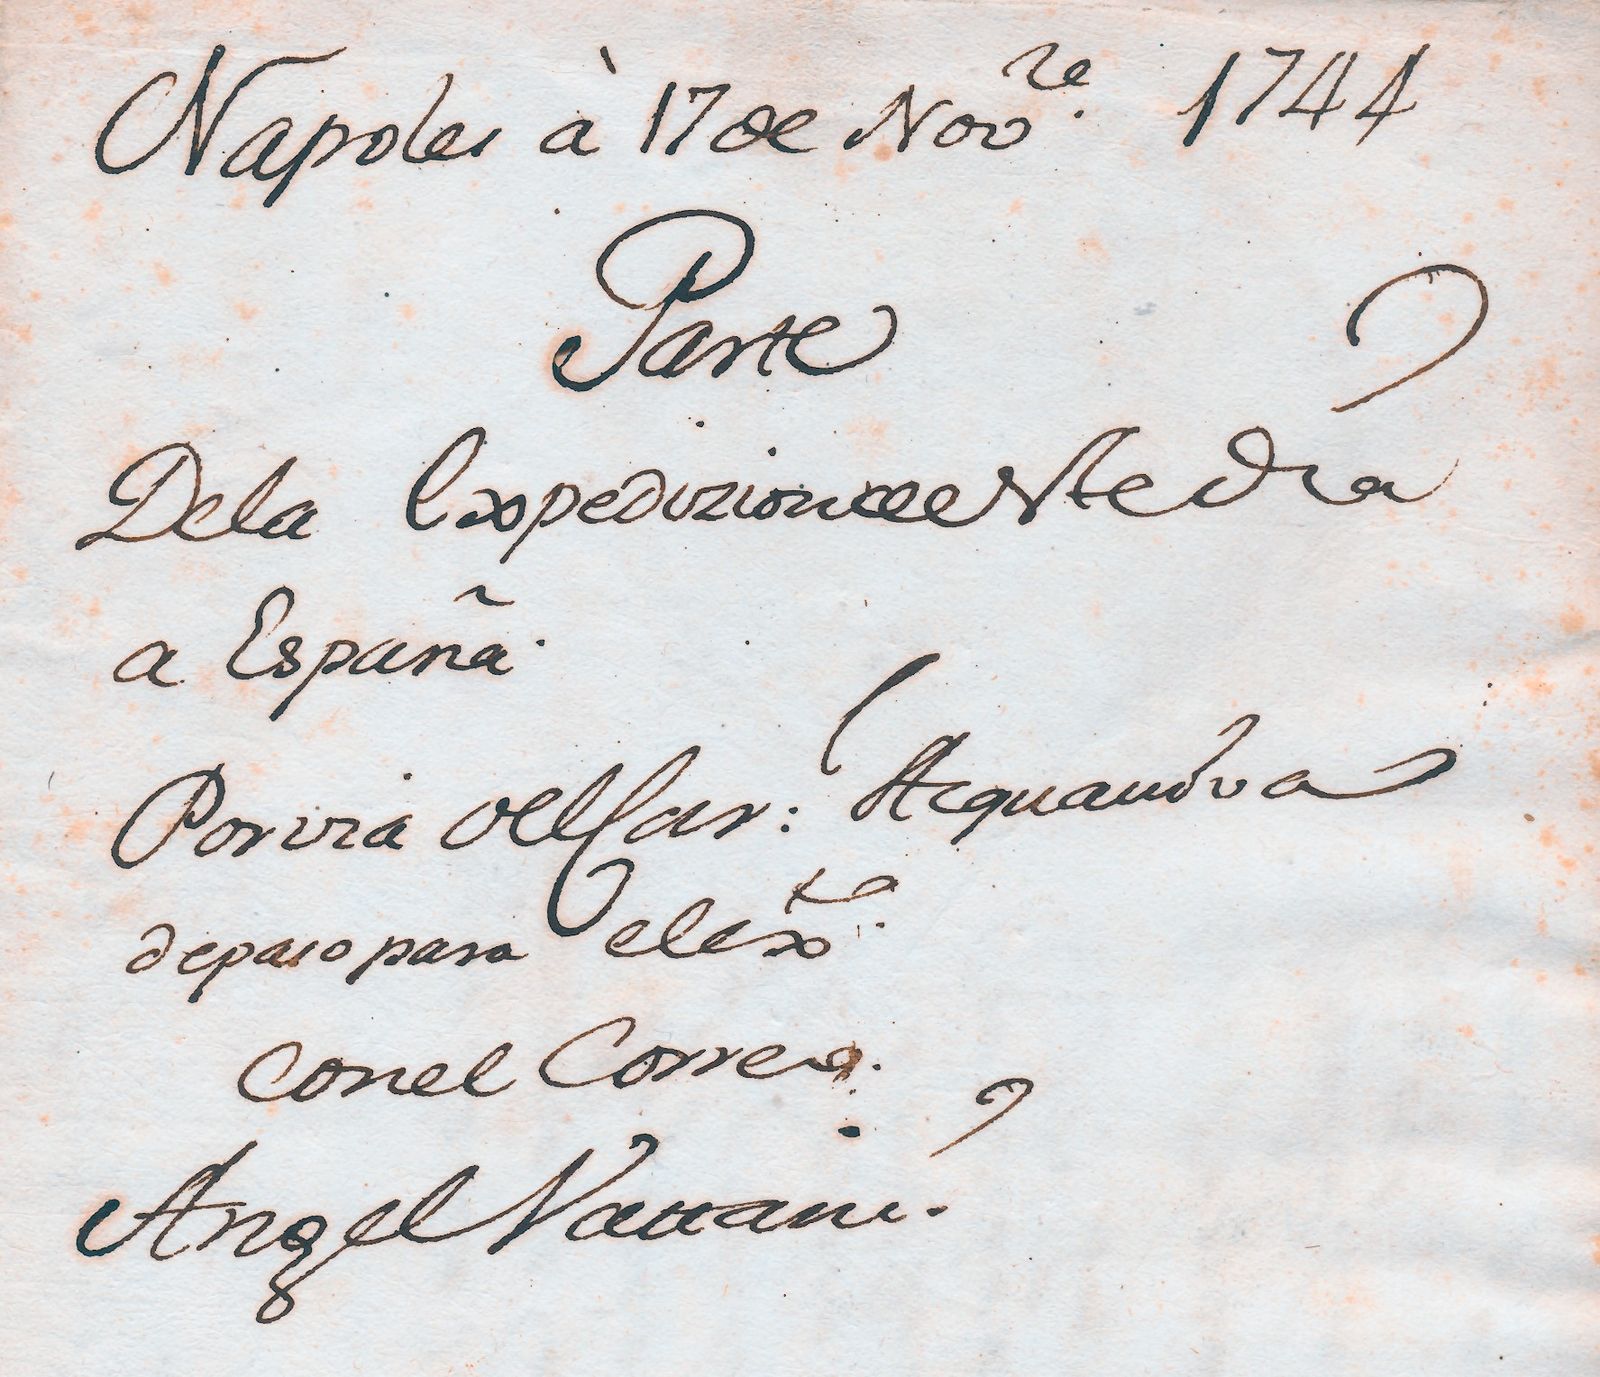 Napoles à 17 de Nov.re 1744
Parte
Dela Expedizion de este dia
a España.
Por via del Car: Acquaviva
de paso para el ex.to
con el Correo.
Angel